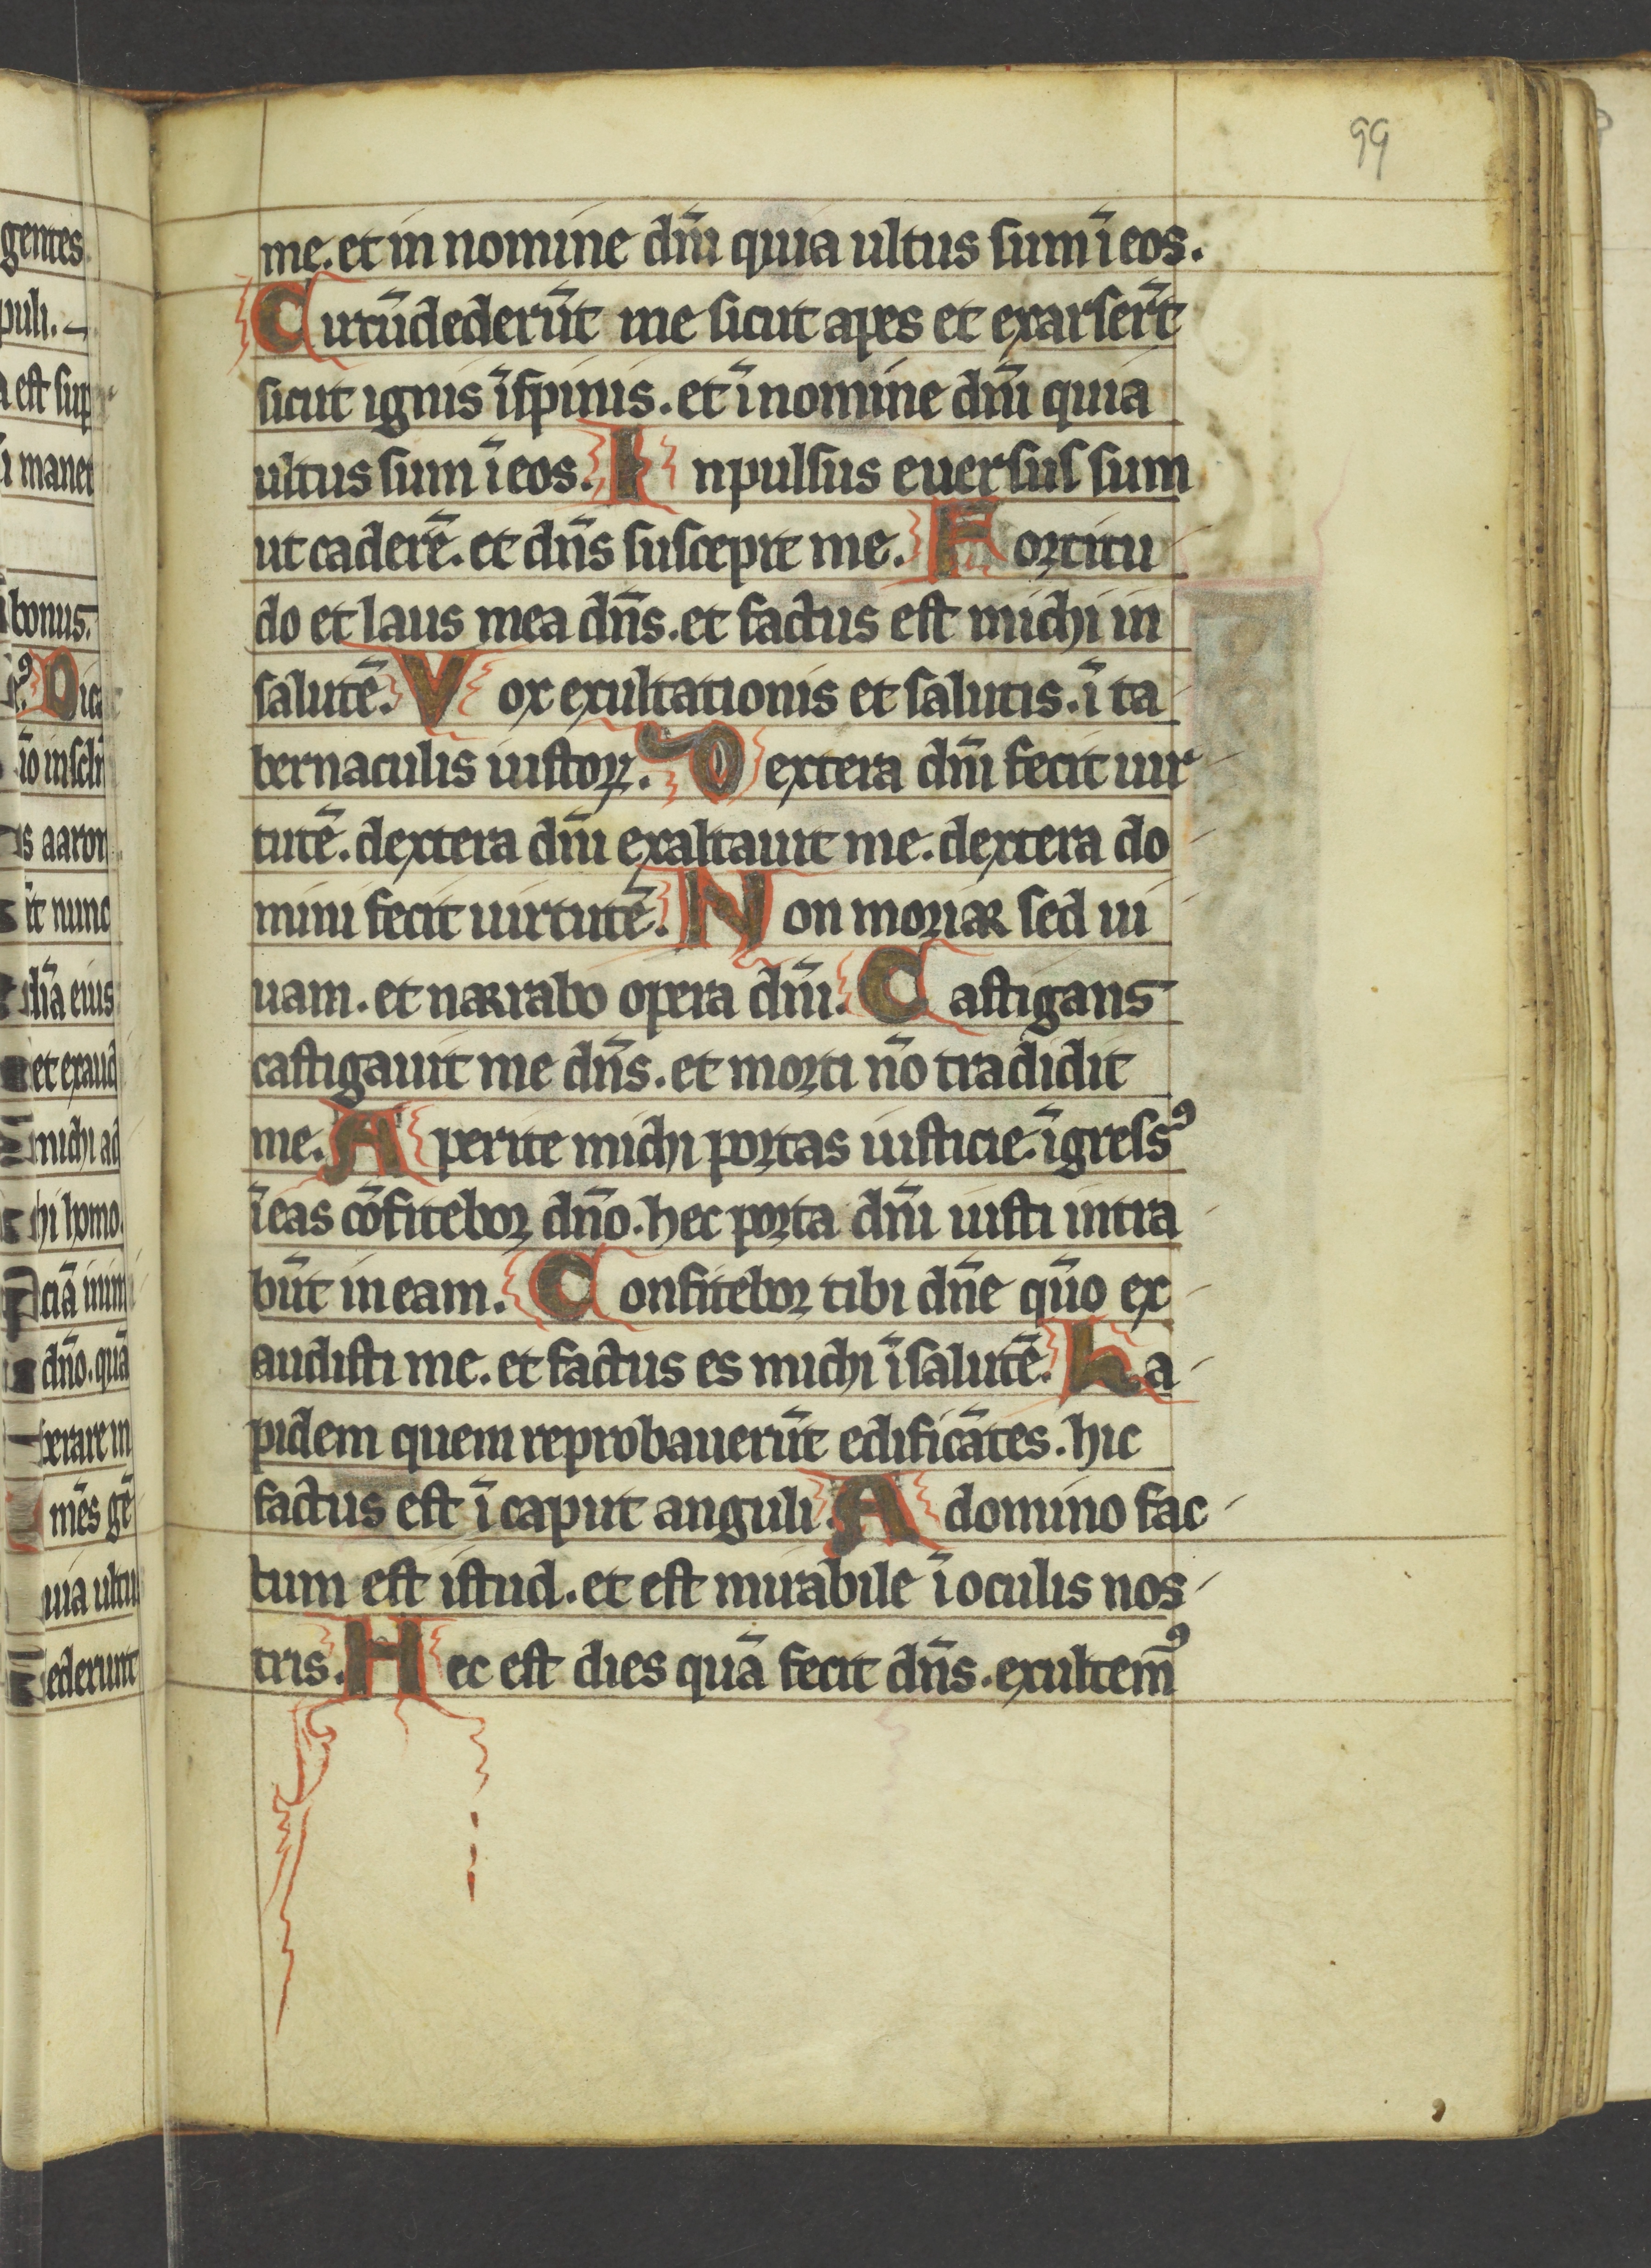 99
me. et in nomine dñi quia ultus sum ī eos.
Circūdederūt me sicut apes et exarser̄t
sicut ignis ī spinis. et ī nomine dñi quia
ultus sum ī eos. Inpulsus euersus sum
ut caderē. et dñs suscepit me. Fortitu
do et laus mea dñs. et factus est michi in
salutē. Vox exultationis et salutis. ī ta
bernaculis iustoꝝ. Dextera dñi fecit uir
tutē. dextera dñi exaltauit me. dextera do
mini fecit uirtutē. Non moriar sed ui
uam. et narrabo opera dñi. Castigans
castigauit me dñs. et morti nō tradidit
me. Aperite michi portas iusticie. īgress⁹
ī eas cōfitebor dño. hec porta dñi iusti intra
būt in eam. Confitebor tibi dñe qūo ex
audisti me. et factus es michi ī salutē. La
pidem quem reprobauerūt edificātes. hic
factus est ī caput anguli. A domino fac
tum est istud. et est mirabile ī oculis nos
tris. Hec est dies quā fecit dñs. exultem⁹